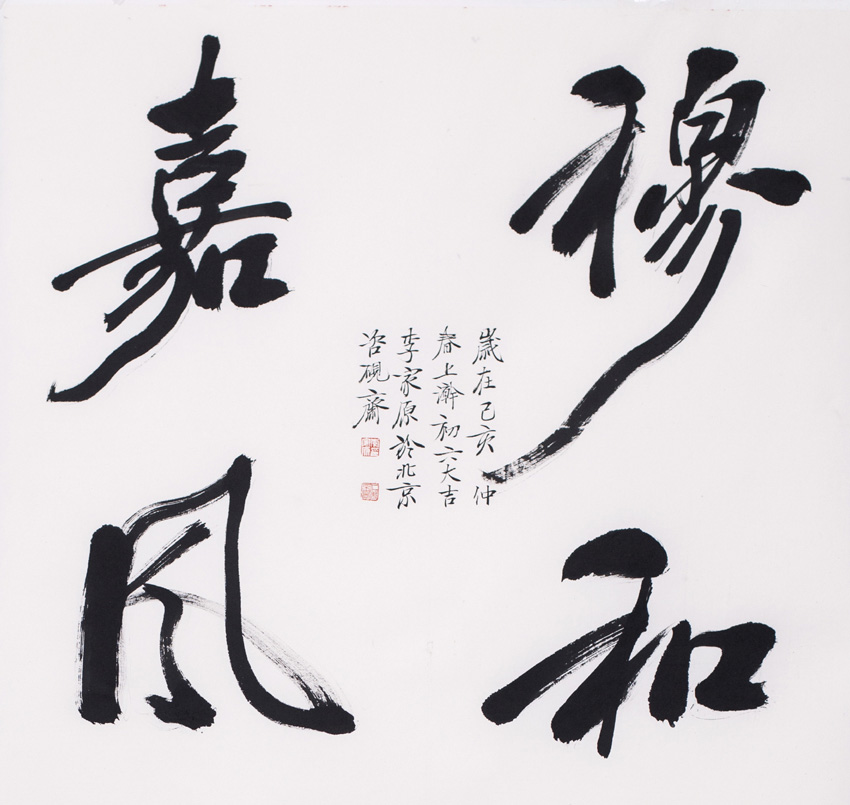 穆和
嘉风
歲在己亥仲
春上澣初六大吉
李家原於北京
咨硯齋